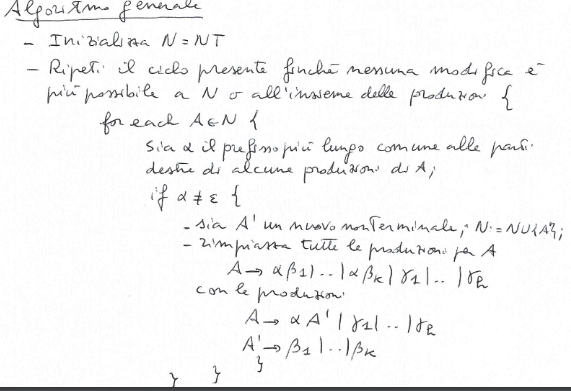 Algoritmo generale
- Inizializza N = NT
- Ripeti il ciclo presente finché nessuna modifica è
più possibile a N o all'insieme delle produzioni {
for each A ∈ N {
Sia α il prefisso più lungo comune alle parti
destre di alcune produzioni di A;
if α ≠ ε {
- sia A' un nuovo nonTerminale; N := N∪{A'};
- rimpiazza tutte le produzioni per A
A → αβ1 | .. | αβk | γ1 | .. | γh
con le produzioni
A → αA' | γ1 | .. | γh
A' → β1 | .. | βk
} } }